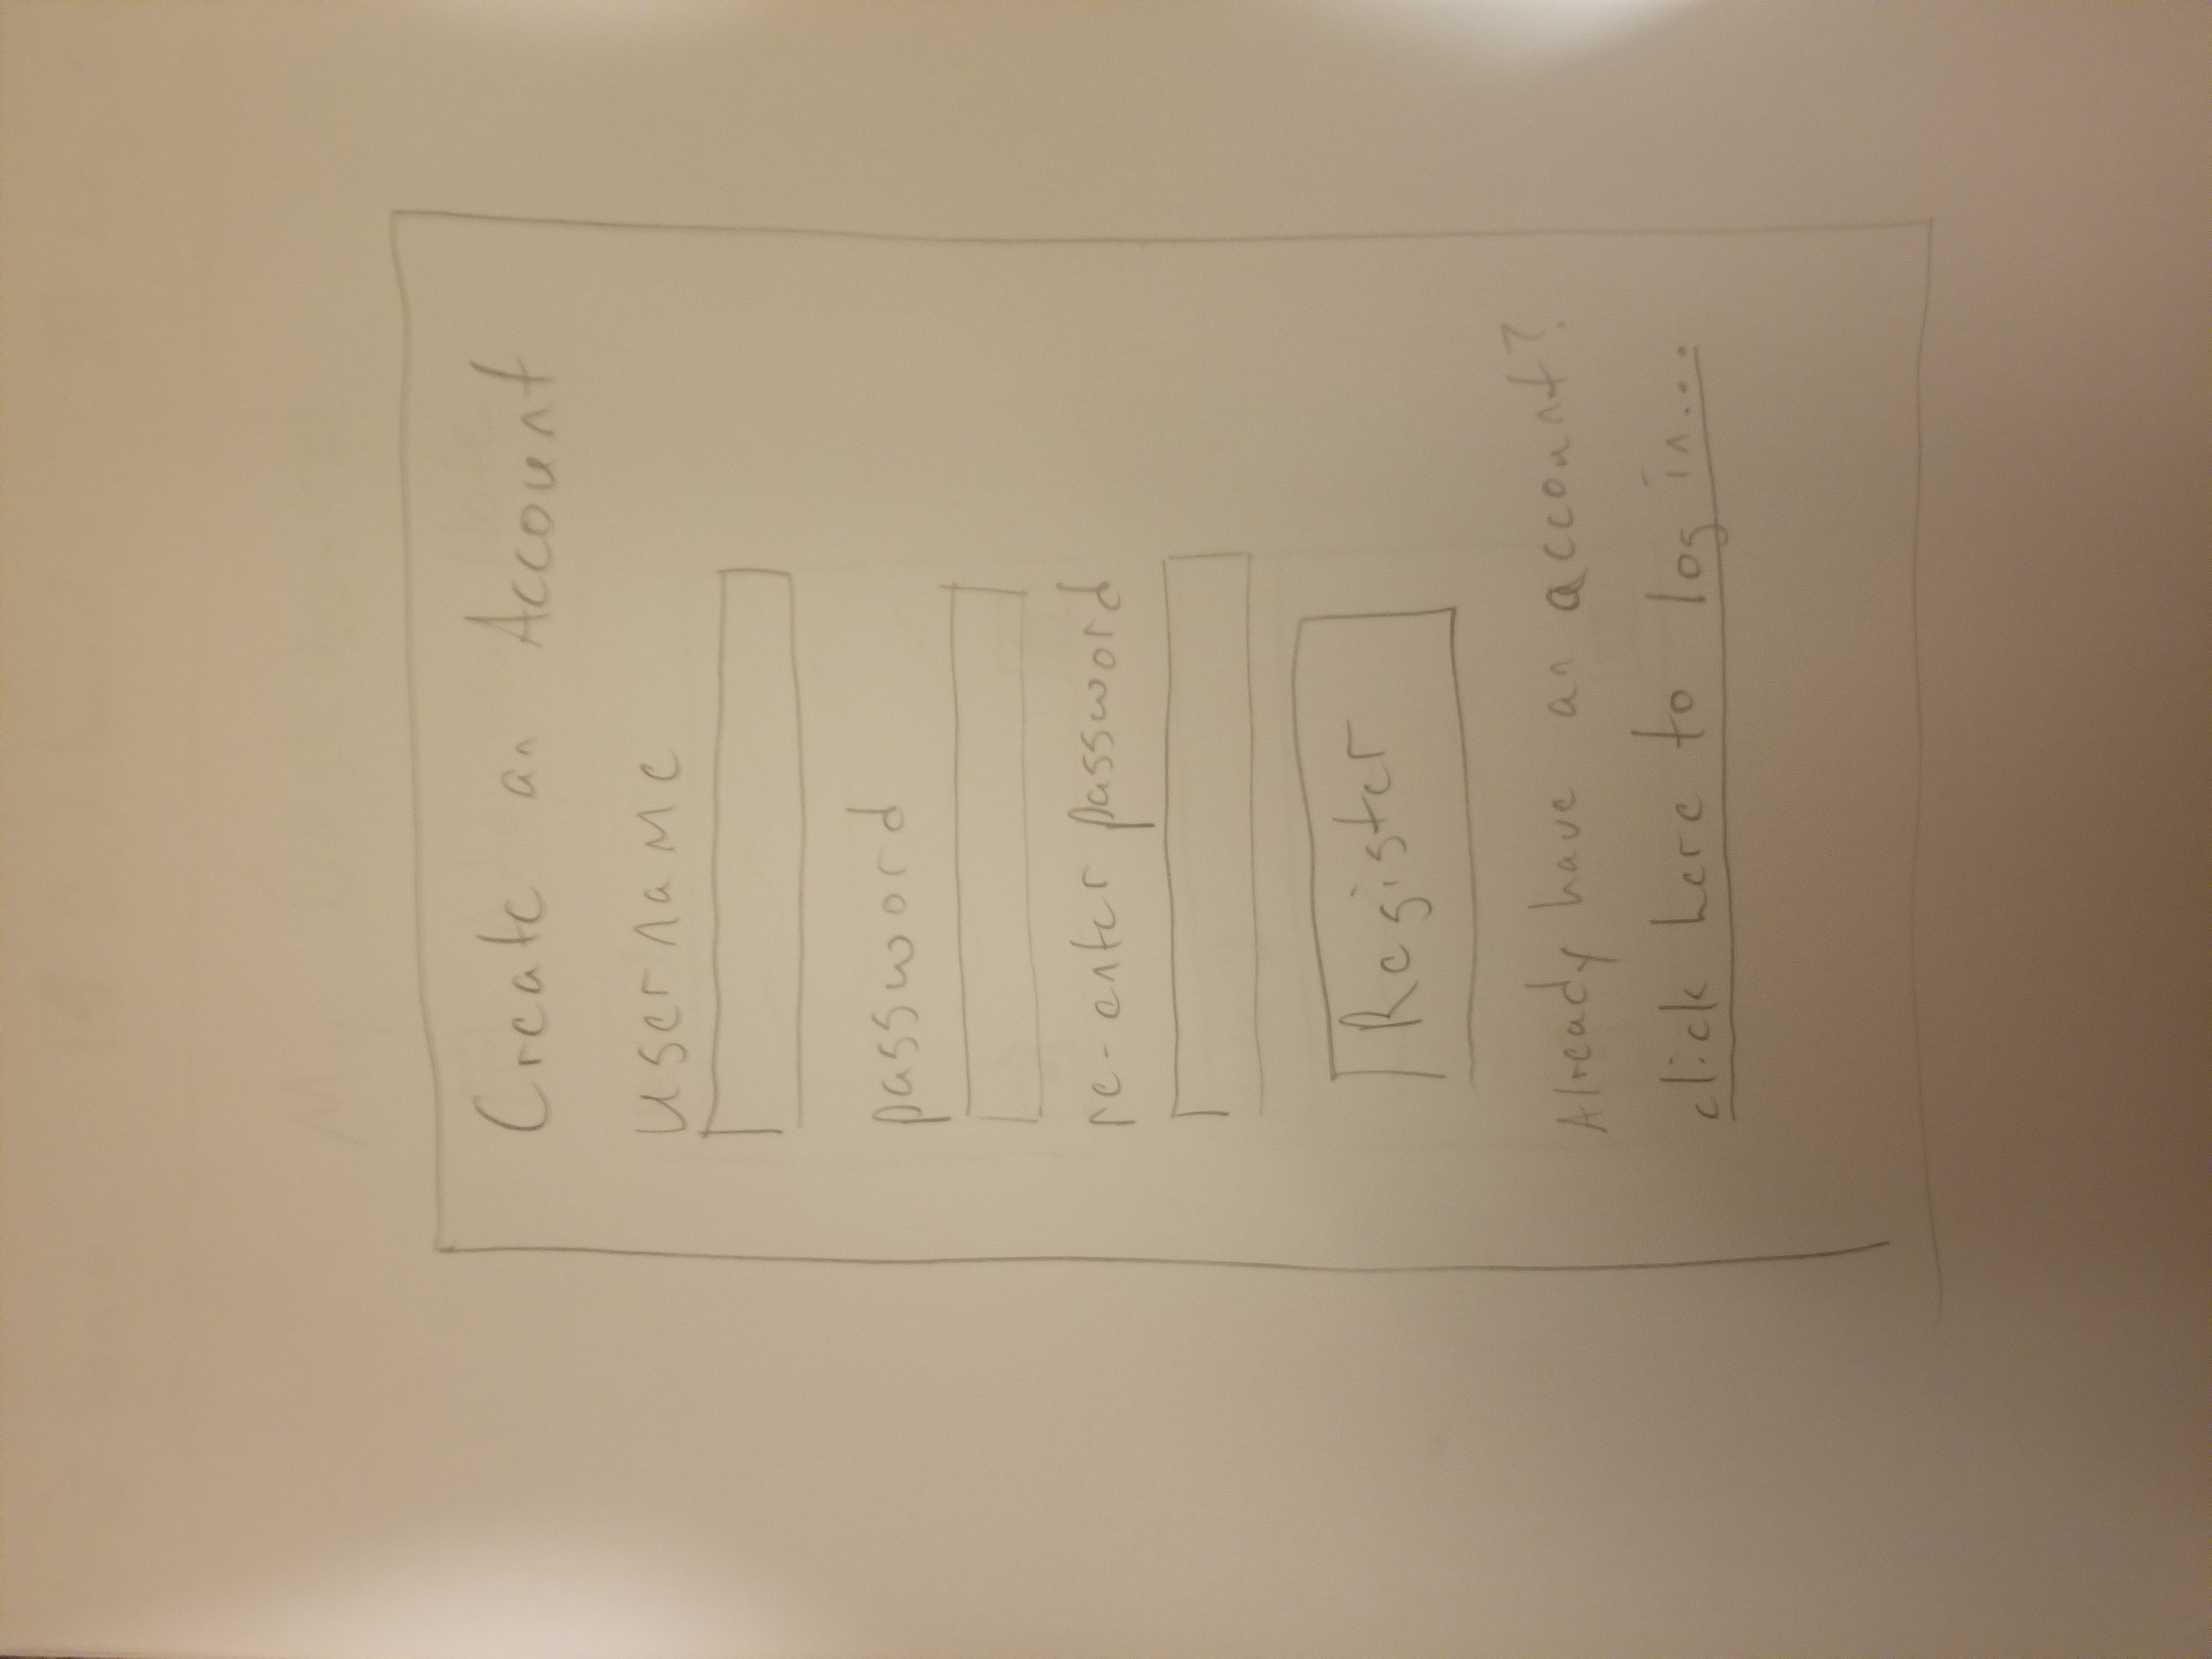 Create an Account
username
password
re-enter password
Register
Already have an account?
click here to log in...